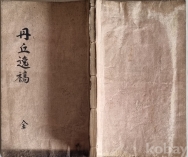 丹丘逸稿
全
kobay